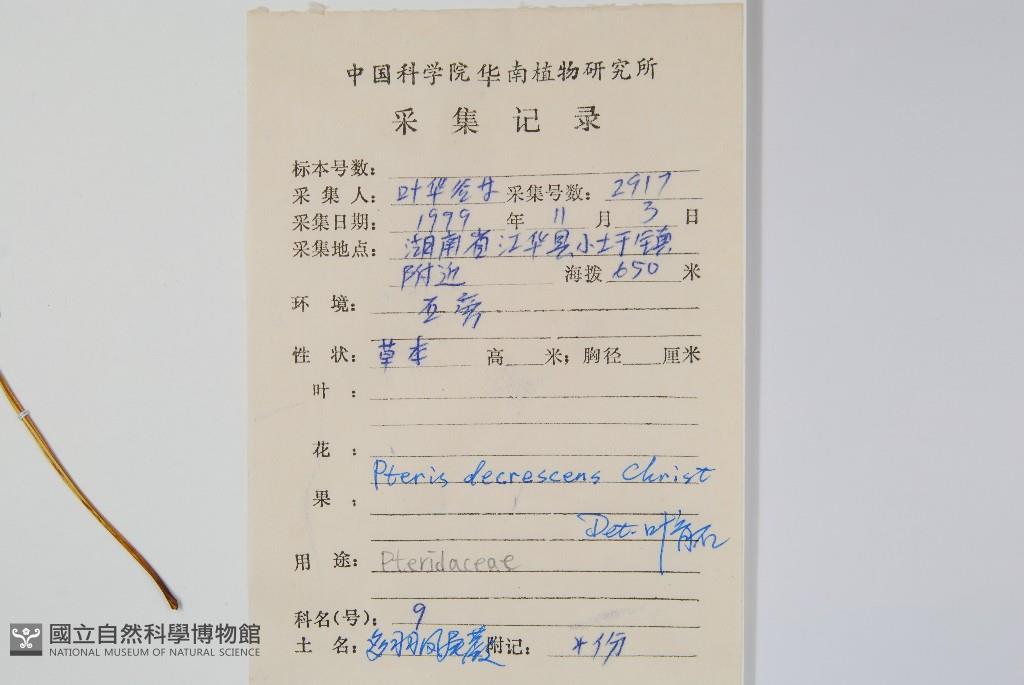 中国科学院华南植物研究所
采集记录
标本号数:
采集人: 叶华谷 采集号数: 2917
采集日期: 1999 年 11 月 3 日
采集地点: 湖南省江华县小土于镇
附近 海拨 650 米
环境:
性状: 草本 高 米; 胸径 厘米
叶:
花:
Pteris decrescens Christ
果:
Det. 叶育石
用途: Pteridaceae
科名(号): 9
土名: 多羽凤尾蕨 附记: 份
國立自然科學博物館
NATIONAL MUSEUM OF NATURAL SCIENCE